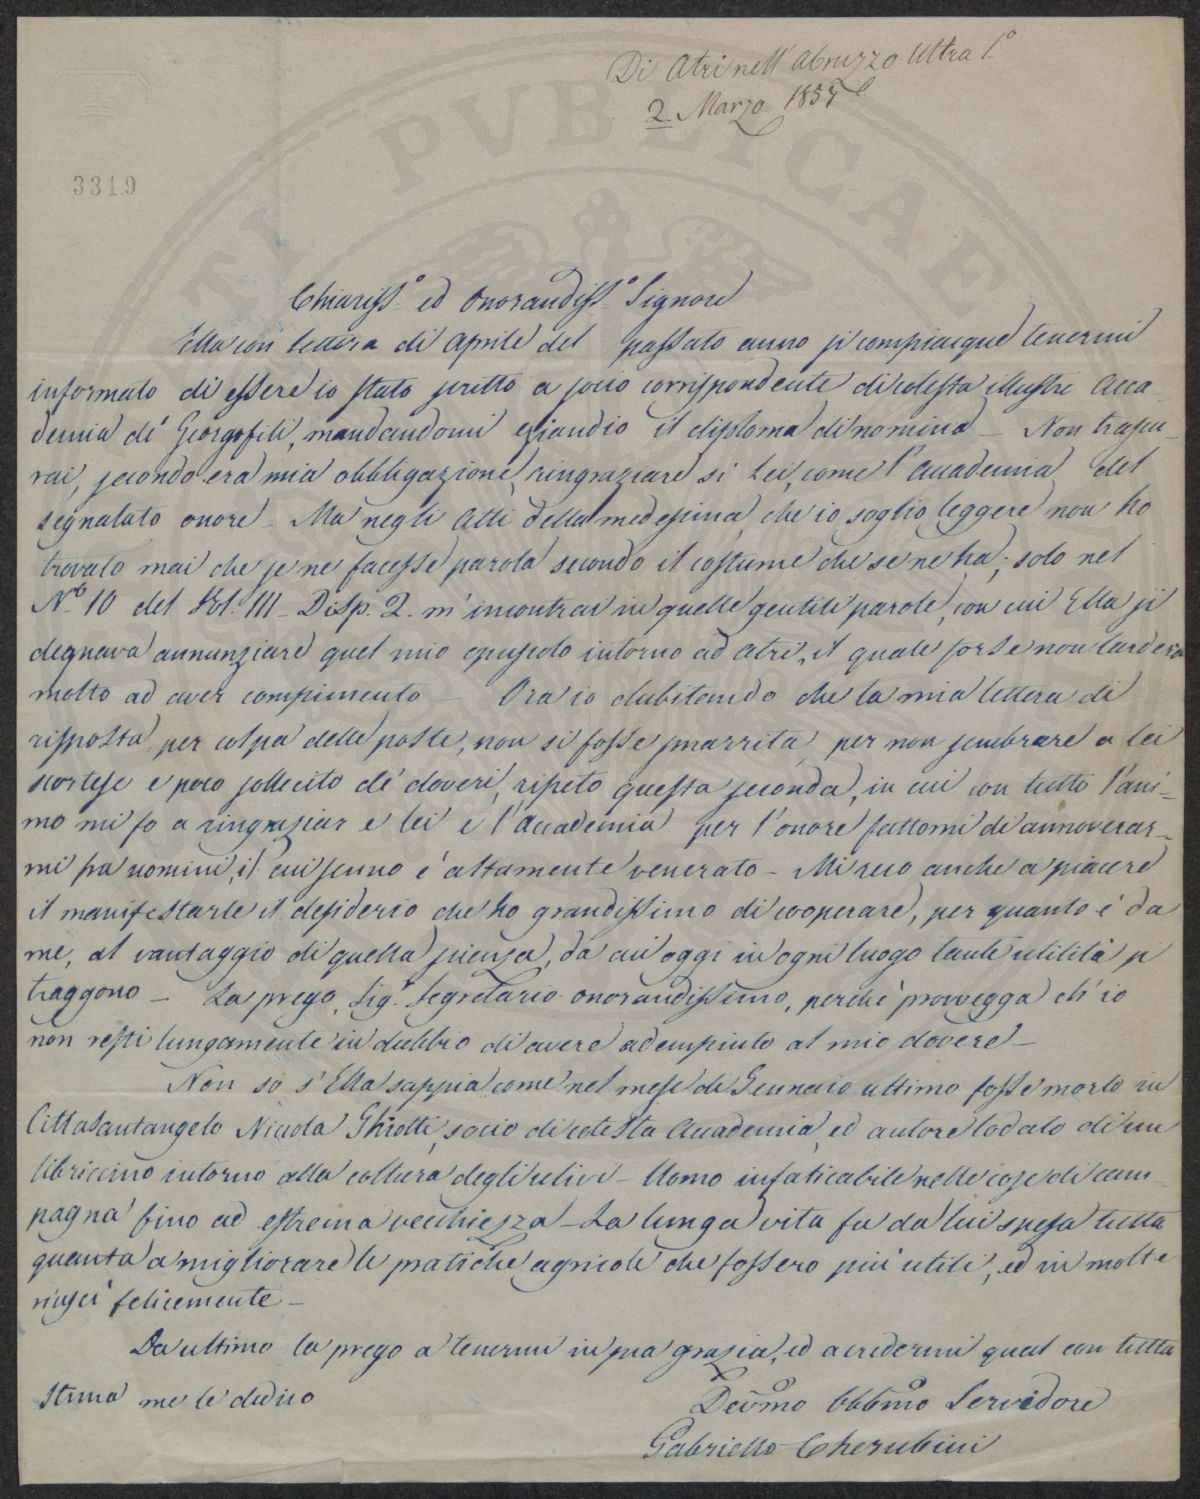 Di Atri nell'Abruzzo Ultra 1°
2 Marzo 1857
3319
Chiariss.° ed Onorandiss.° Signore
Ella con lettera di Aprile del passato anno si compiacque tenermi
informato di essere io stato scritto a socio corrispondente di cotesta illustre Acca-
demia de' Georgofili, mandandomi eziandio il diploma di nomina - Non trascu-
rai, secondo era mia obbligazione, ringraziare sì Lei, come l'Accademia del
segnalato onore - Ma negli Atti della medesima, che io soglio leggere non ho
trovato mai che se ne facesse parola secondo il costume che se ne ha; solo nel
N.° 10 del Vol. III - Disp. 2. m'incontrai in quelle gentili parole, con cui Ella si
degnava annunziare quel mio opuscolo intorno ad Atri, il quale forse non tarderà
molto ad aver compimento - Ora io dubitando che la mia lettera di
risposta, per colpa delle poste, non si fosse smarrita, per non sembrare a lei
scortese e poco sollecito de' doveri, ripeto questa seconda, in cui con tutto l'ani-
mo mi fo a ringraziar e lei e l'Accademia per l'onore fattomi di annoverar-
mi fra uomini, il cui senno è altamente venerato - Mi reco anche a piacere
il manifestarle il desiderio che ho grandissimo di cooperare, per quanto è da
me, al vantaggio di quella scienza, da cui oggi in ogni luogo tante utilità si
traggono - La prego, Sig.r Segretario onorandissimo, perché provvegga ch'io
non resti lungamente in dubbio di avere adempiuto al mio dovere -
Non so s'Ella sappia come nel mese di Gennaio ultimo fosse morto in
Cittasantangelo Nicola Ghiotti, socio di cotesta Accademia, ed autore lodato di un
libriccino intorno alla coltura degli ulivi - Uomo infaticabile nelle cose di cam-
pagna fino ad estrema vecchiezza - La lunga vita fu da lui spesa tutta
quanta a migliorare le pratiche agricole che fossero più utili, ed in molte
riuscì felicemente -
Da ultimo la prego a tenermi in sua grazia, ed a credermi qual con tutta
stima me le dedico
Dev̄mo Obb̄mo Servidore
Gabriello Cherubini